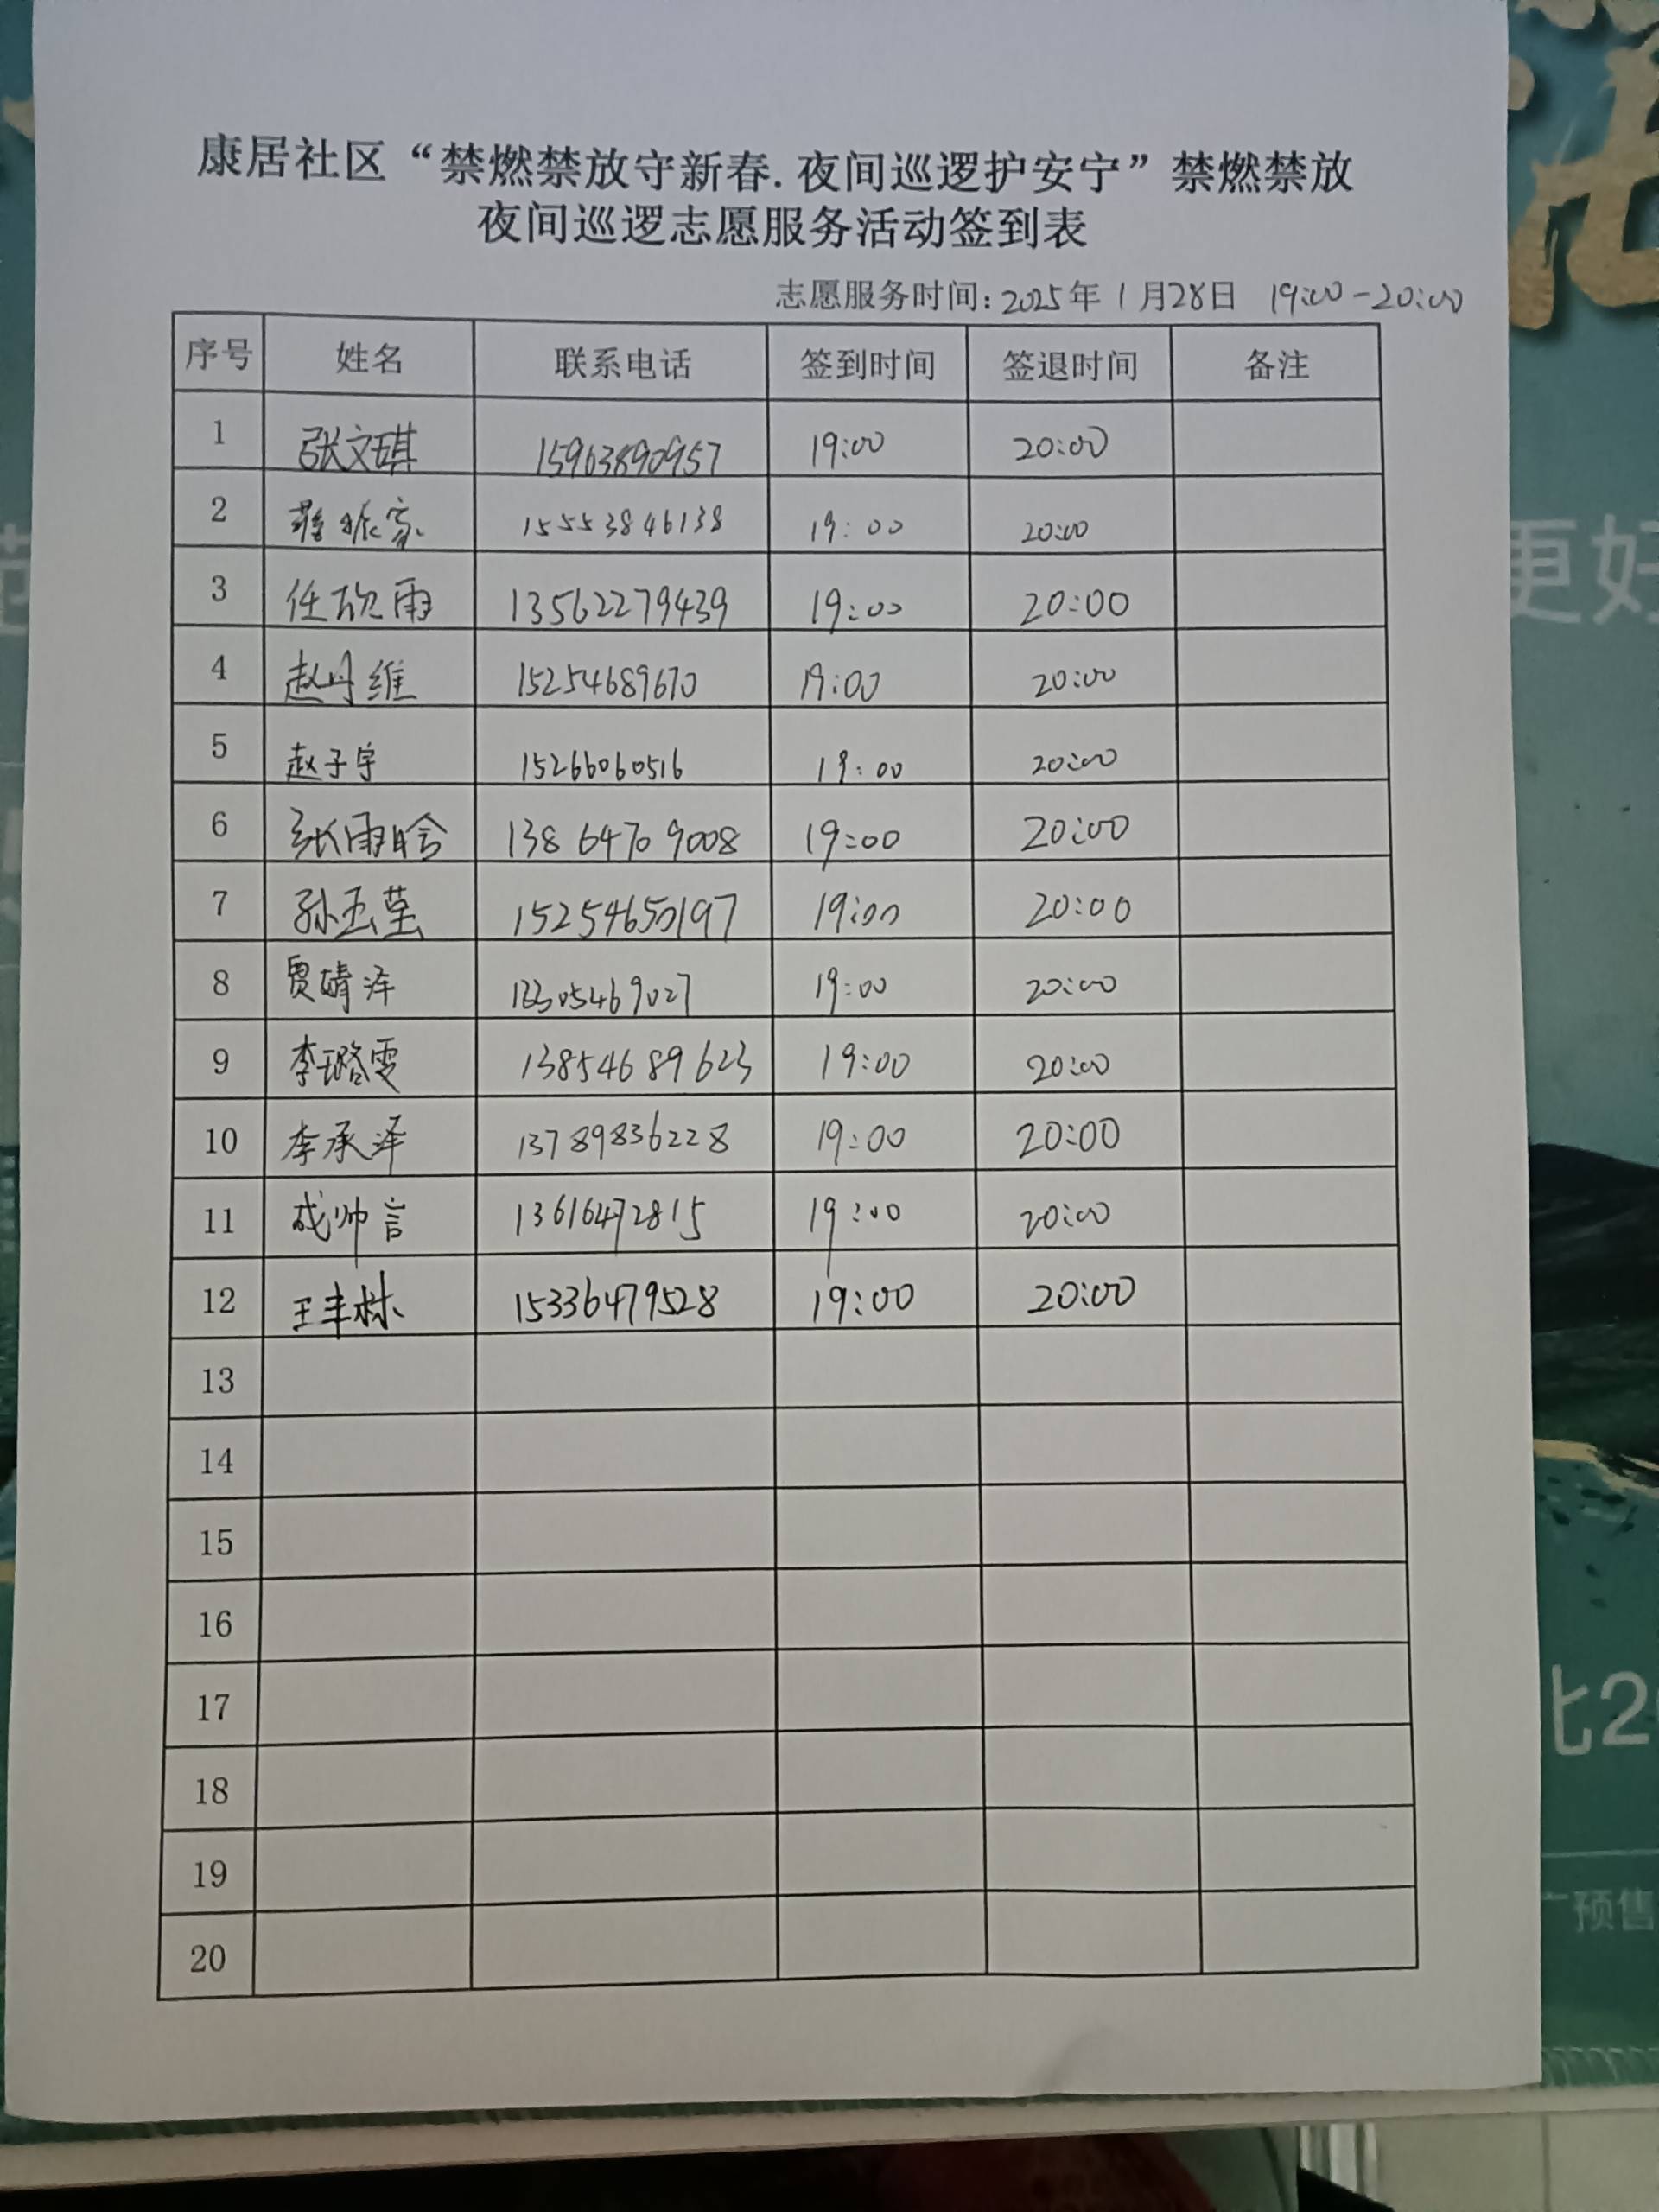 康居社区“禁燃禁放守新春.夜间巡逻护安宁”禁燃禁放
夜间巡逻志愿服务活动签到表
志愿服务时间:2025年1月28日 19:00-20:00
序号 姓名 联系电话 签到时间 签退时间 备注
1 张文琪 15963890957 19:00 20:00
2 15553846138 19:00 20:00
3 任欣雨 13562279439 19:00 20:00
4 赵丹维 15254689670 19:00 20:00
5 赵子宇 15266060516 19:00 20:00
6 张雨晗 13864709008 19:00 20:00
7 孙玉莹 15254650197 19:00 20:00
8 贾晴泽 13305469027 19:00 20:00
9 李璐雯 13854689623 19:00 20:00
10 李承泽 13789836228 19:00 20:00
11 成帅言 13616472815 19:00 20:00
12 王丰林 15336479528 19:00 20:00
13
14
15
16
17
18
19
20
更好
北2
预售